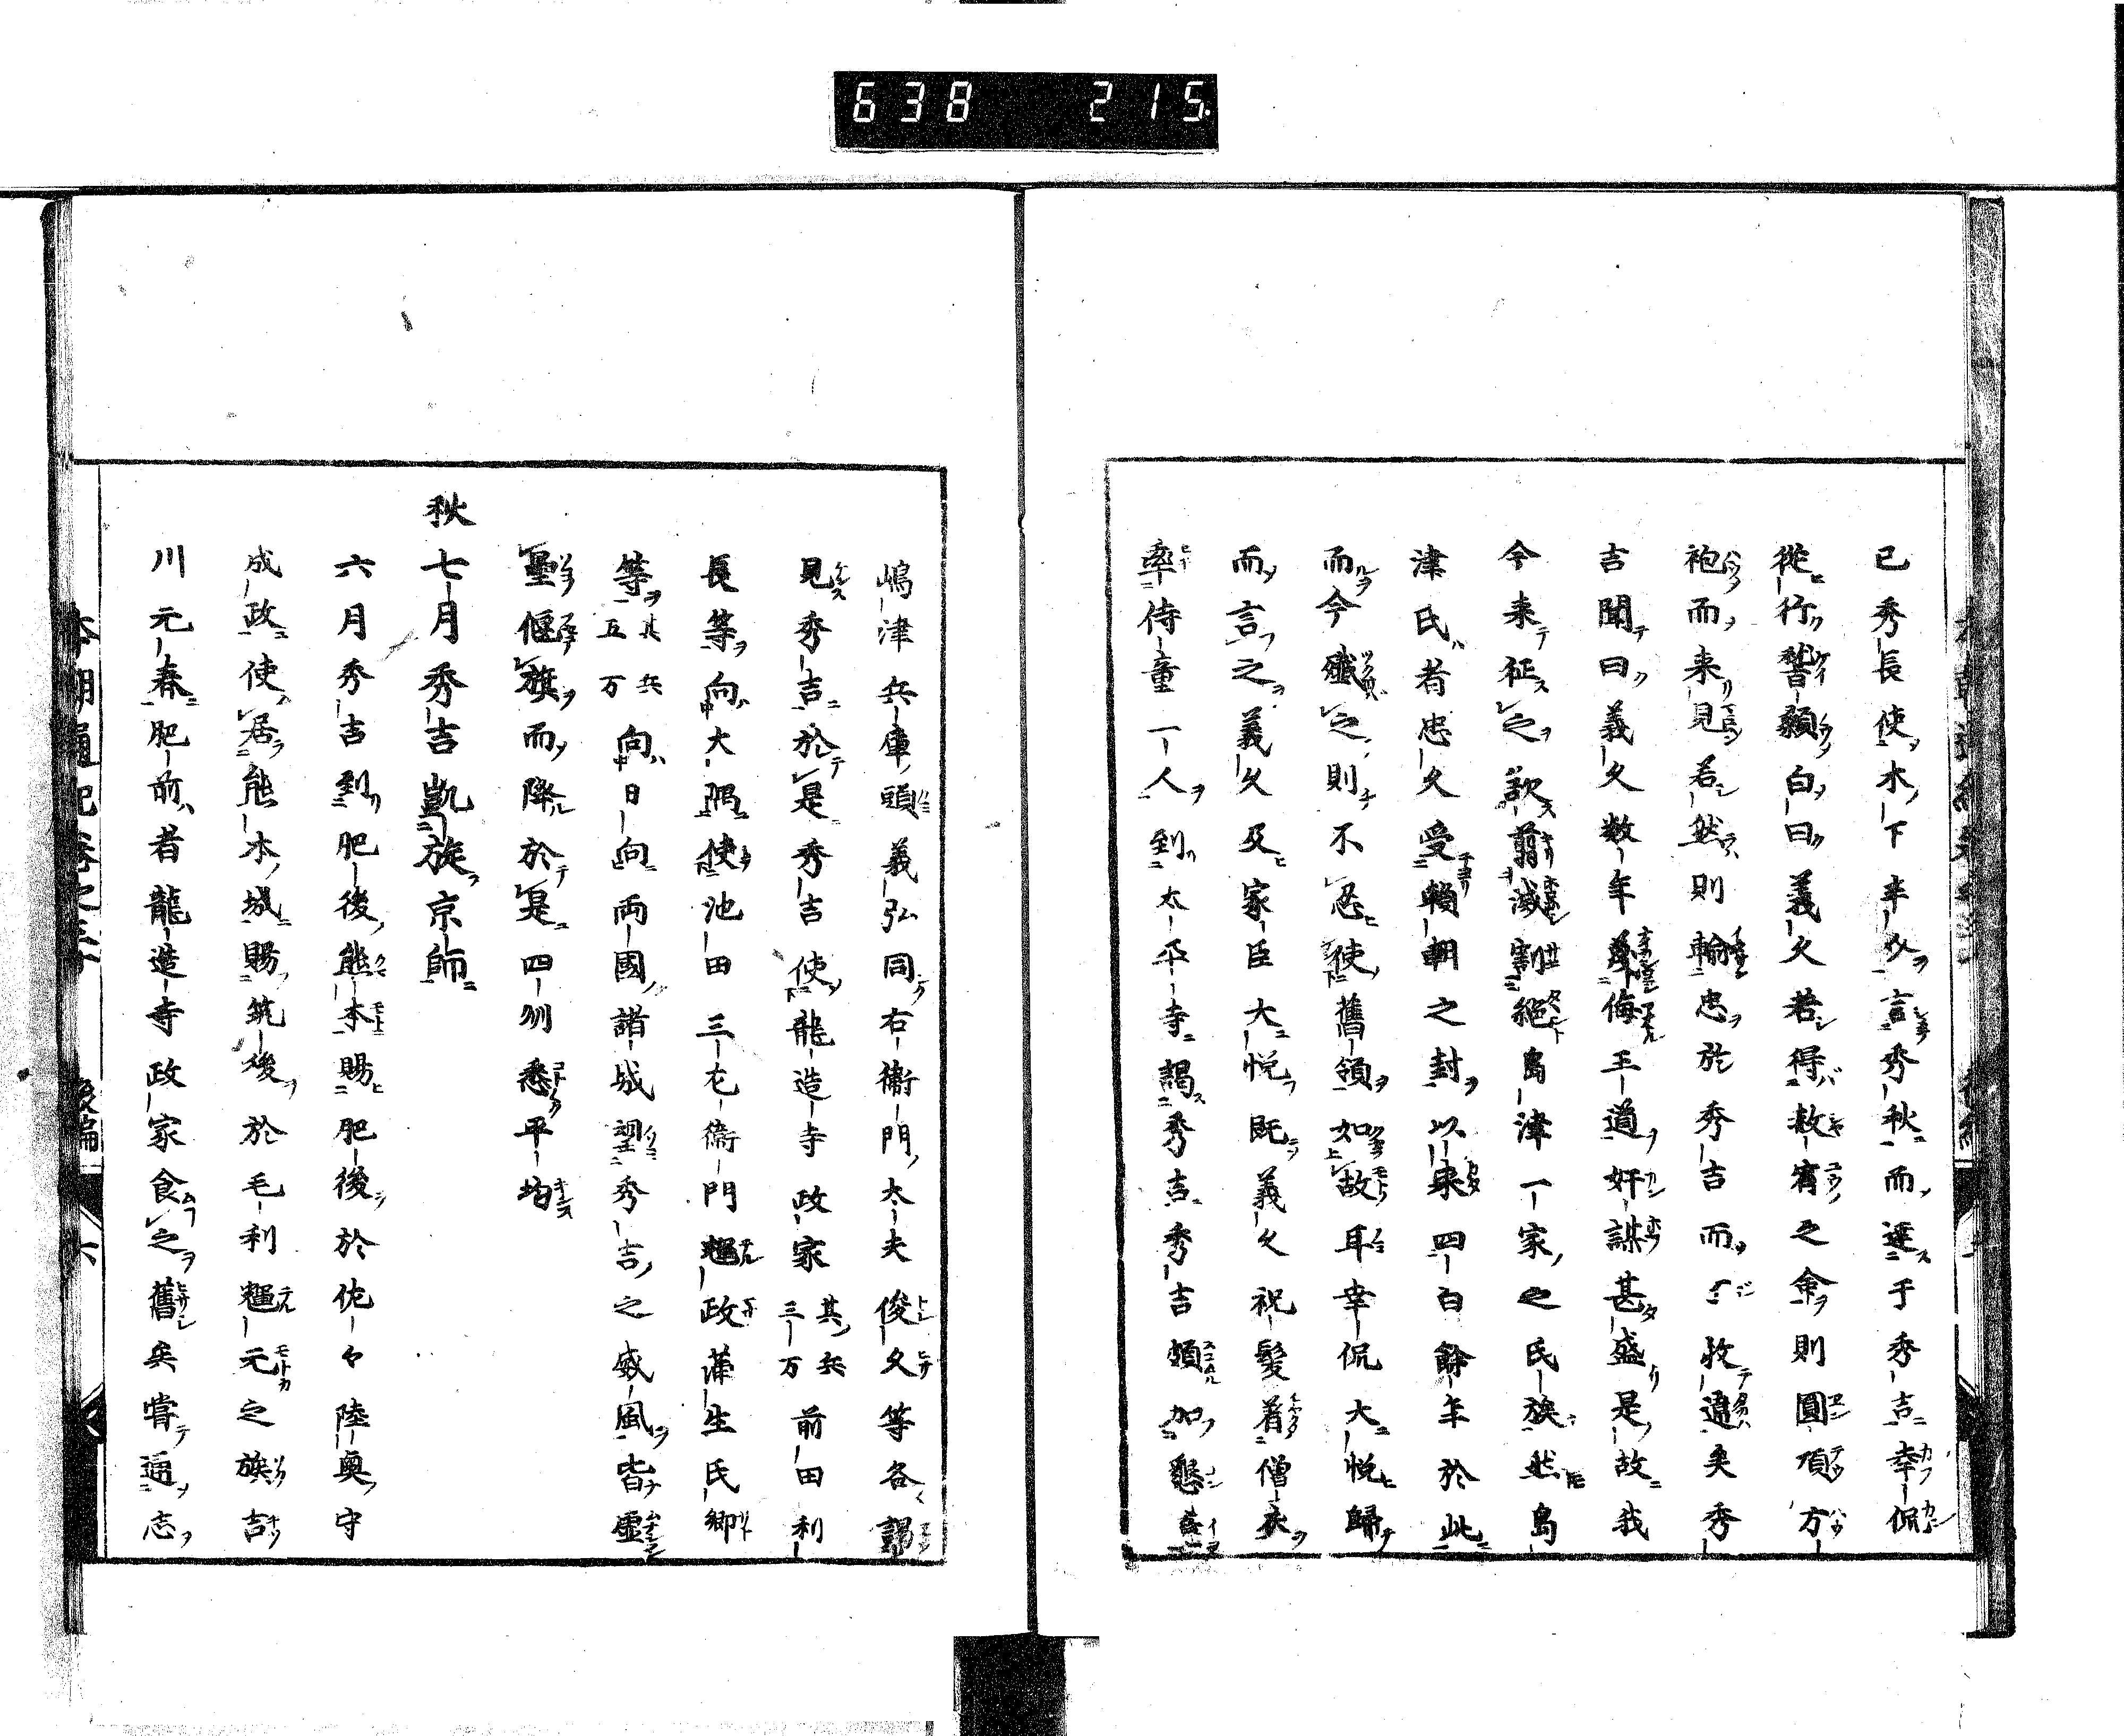 638 215
已秀長使木下半介言秀秋而達于秀吉幸侃
從行誓顙白曰義久若得赦宥之命則圓頂方
袍而来見若然則輸忠於秀吉而可牧邉矣秀
吉聞曰義久数年蔑侮王道奸謀甚盛是故我
今来征之欲翦滅割絕島津一家之氏族然島
津氏者忠久受賴朝之封以来四百餘年於此
而今殲之則不忍使舊領如故耳幸侃大悅歸
而言之義久及家臣大悅既義久祝髮着僧衣
率侍童一人到太平寺謁秀吉秀吉頗加懇
嶋津兵庫頭義弘同右衞門太夫俊久等各謁
見秀吉於是秀吉使龍造寺政家其兵三万前田利
長等向大隅使池田三左衞門輝政蒲生氏郷
等其兵五万向日向両國諸城望秀吉之威風皆虛
壘偃旗而降於是四州悉平均
秋七月秀吉凱旋京師
六月秀吉到肥後熊本賜肥後於佐々陸奥守
成政使居熊本城賜筑後於毛利輝元之族吉
川元春肥前者龍造寺政家食之舊矣嘗通志
本朝通紀卷之 後編 六